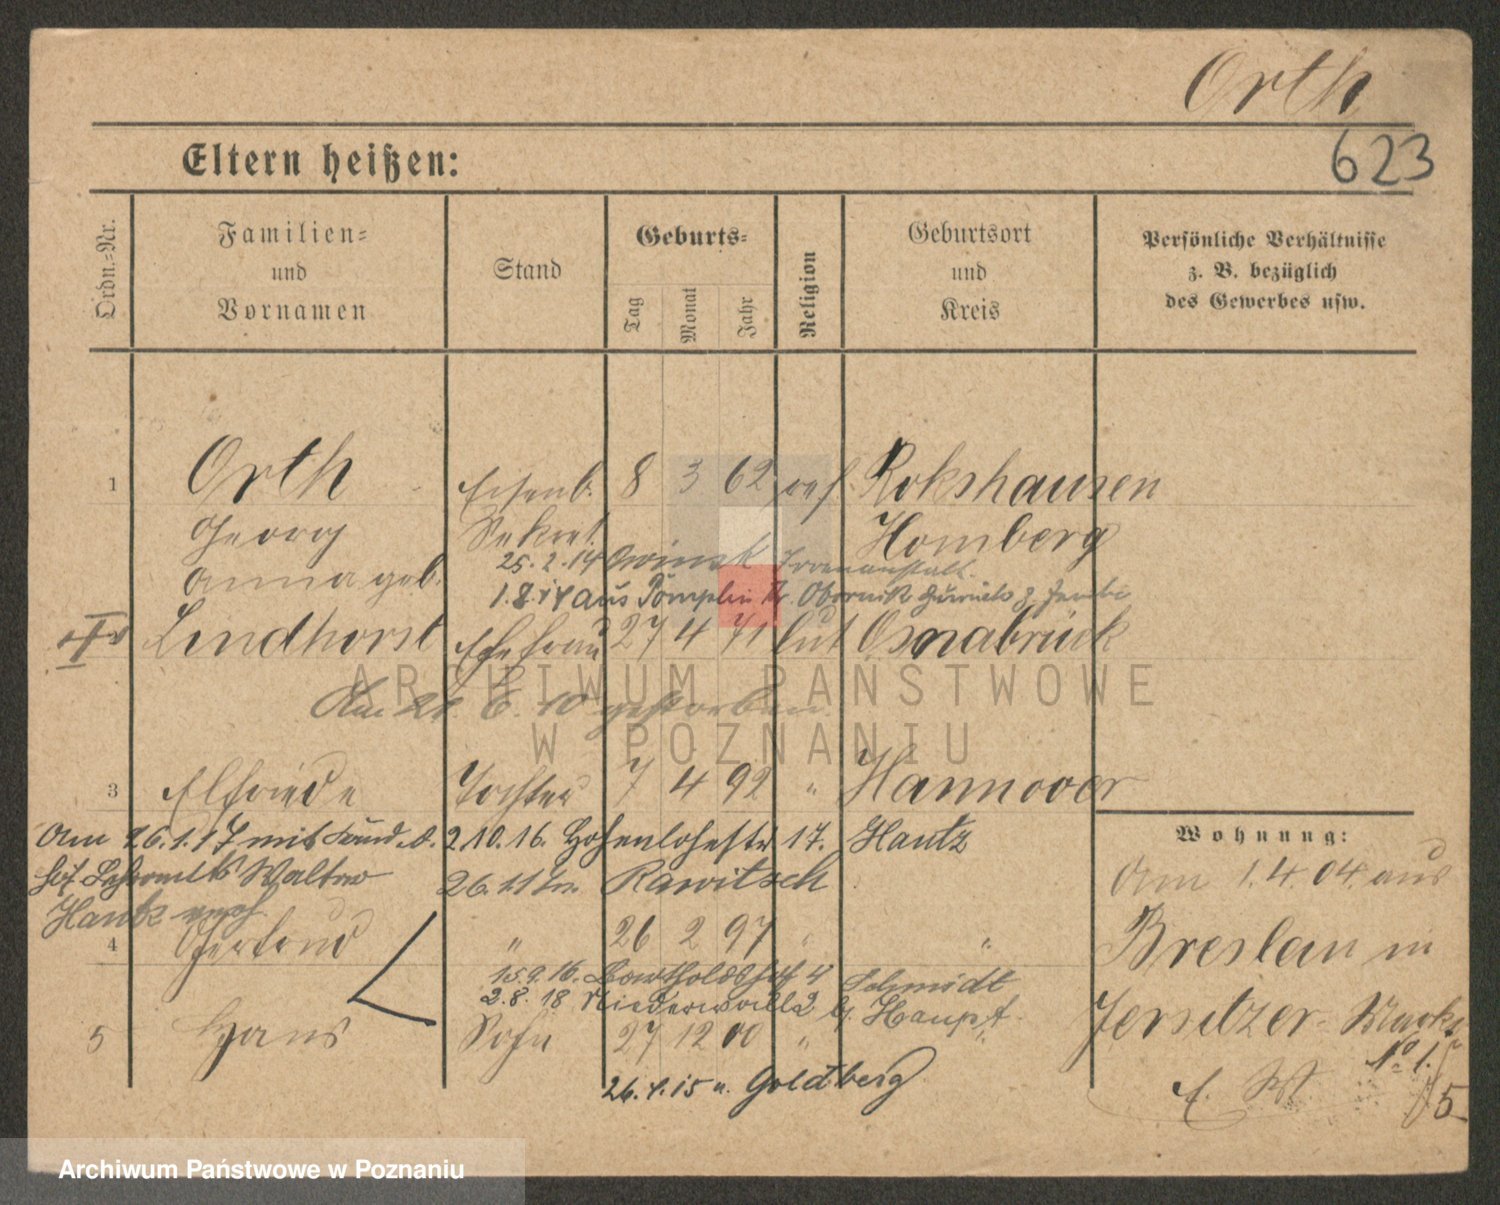 Orth
623
Eltern heißen:
Ordn.-Nr.
Familien-
und
Vornamen
Stand
Geburts-
Tag
Monat
Jahr
Religion
Geburtsort
und
Kreis
Persönliche Verhältnisse
z. B. bezüglich
des Gewerbes usw.
1 Orth Eisenb. 8 3 62 ref. Rokshausen
Georg Sekret. Homberg
25.2.14 Owinsk Irrenanstalt
Anna geb. 1. aus Kr. Obornik zurück z.
II Lindhorst Ehefrau 27 4 71 lut Osnabrück
Am 21. 6. 10 gestorben
3 Elfriede Tochter 7 4 92 " Hannover
Am 26.1.17 mit 2.10.16. Hohenlohestr 17.
Walter 26.11 Rawitsch
verh.
4 Gertrud " 26 2 97 " "
15.9.16. 4 Schmidt
2.8.18 Niederwall 2 b/ Haupt
5 Hans Sohn 27 12 00 " "
26.1.15 n. Goldberg
Wohnung:
Am 1.4.04. aus
Breslau in
Jersitzer-
No 1.
5
ARCHIWUM PAŃSTWOWE
W POZNANIU
Archiwum Państwowe w Poznaniu